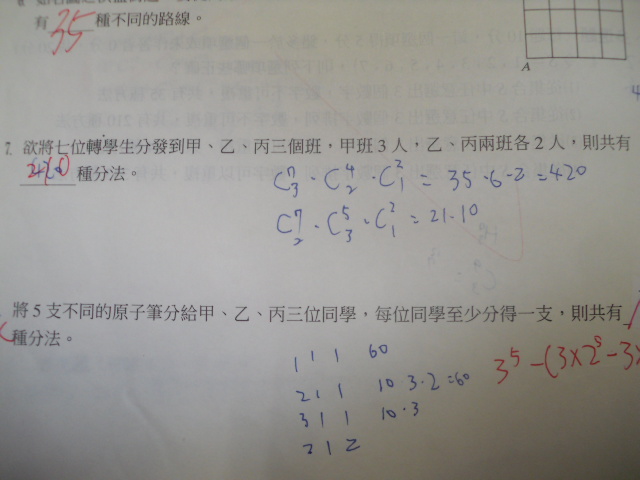 有 35 種不同的路線。
A
7. 欲將七位轉學生分發到甲、乙、丙三個班，甲班 3 人，乙、丙兩班各 2 人，則共有
210 種分法。
C⁷₃ · C⁴₂ · C²₁ = 35·6·2=420
C⁷₂ · C⁵₃ · C²₁ = 21·10
將 5 支不同的原子筆分給甲、乙、丙三位同學，每位同學至少分得一支，則共有
種分法。
1 1 1 60
2 1 1 10 3·2=60
3 1 1 10·3
2 1 2
3⁵-(3×2⁵-3×